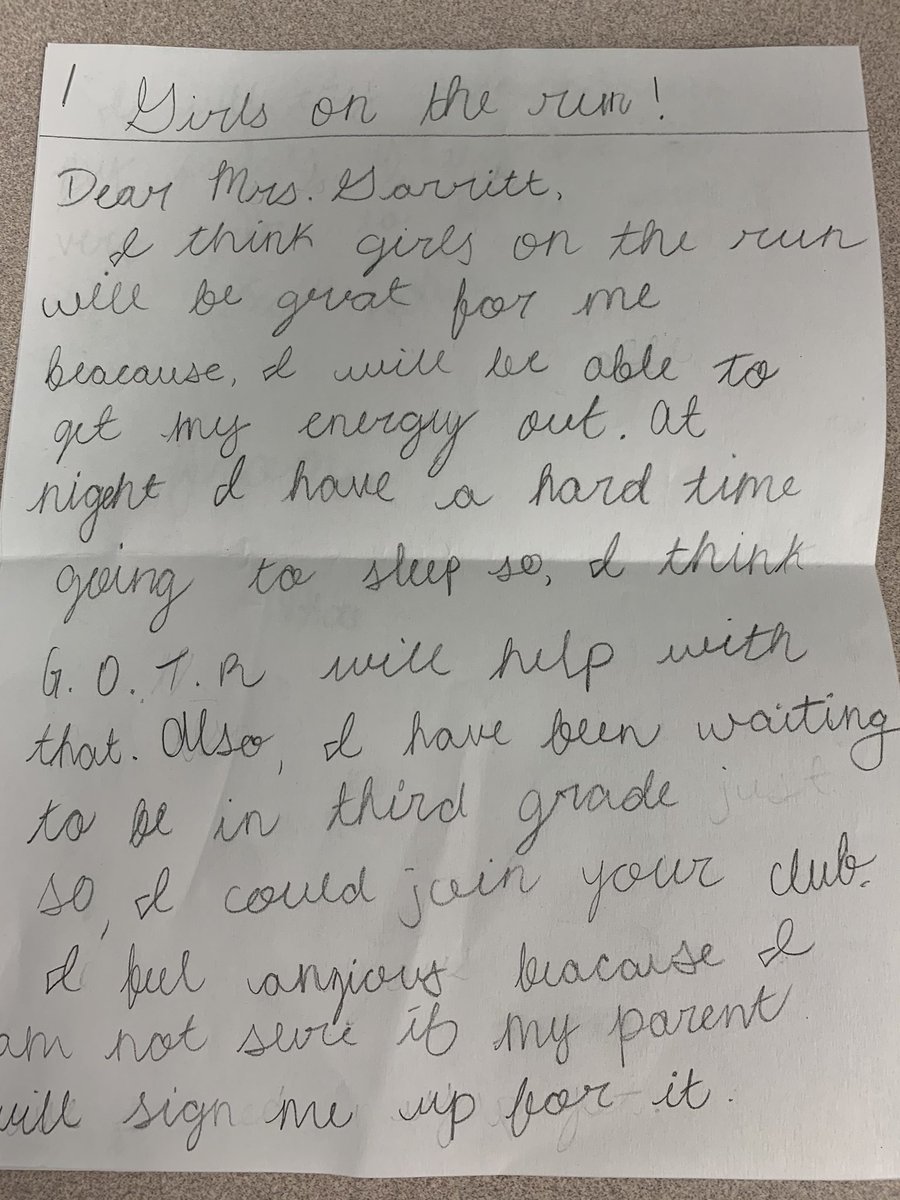 1 Girls on the run!
Dear Mrs. Garritt,
I think girls on the run
will be great for me
beacause, I will be able to
get my energy out. At
night I have a hard time
going to sleep so, I think
G. O. T. R will help with
that. Also, I have been waiting
to be in third grade just
so, I could join your club.
I feel anxious beacause I
am not sure if my parent
will sign me up for it.